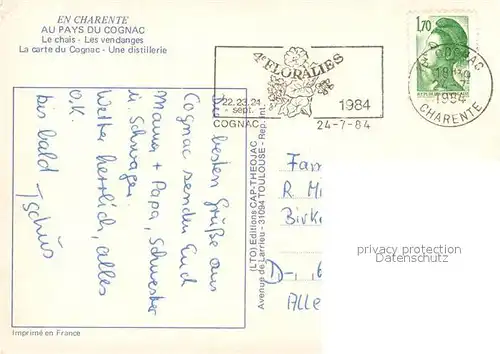 EN CHARENTE
AU PAYS DU COGNAC
Le chais - Les vendanges
La carte du Cognac - Une distillerie
4e FLORALIES
22.23.24
sept.
1984
COGNAC
24-7-84
1,70
COGNAC
1984
CHARENTE
Die besten Grüße aus
Cognac senden Euch
Mama + Papa, Schwester
u. Schwager.
Wetter herrlich, alles
O.K.
bis bald Tschüs
(LTO) Editions CAP-THEOJAC
Avenue de Larrieu - 31094 TOULOUSE - Rep. Int.
Fam
R M
Birke
D-, 6
Alle
privacy protection
Datenschutz
Imprimé en France